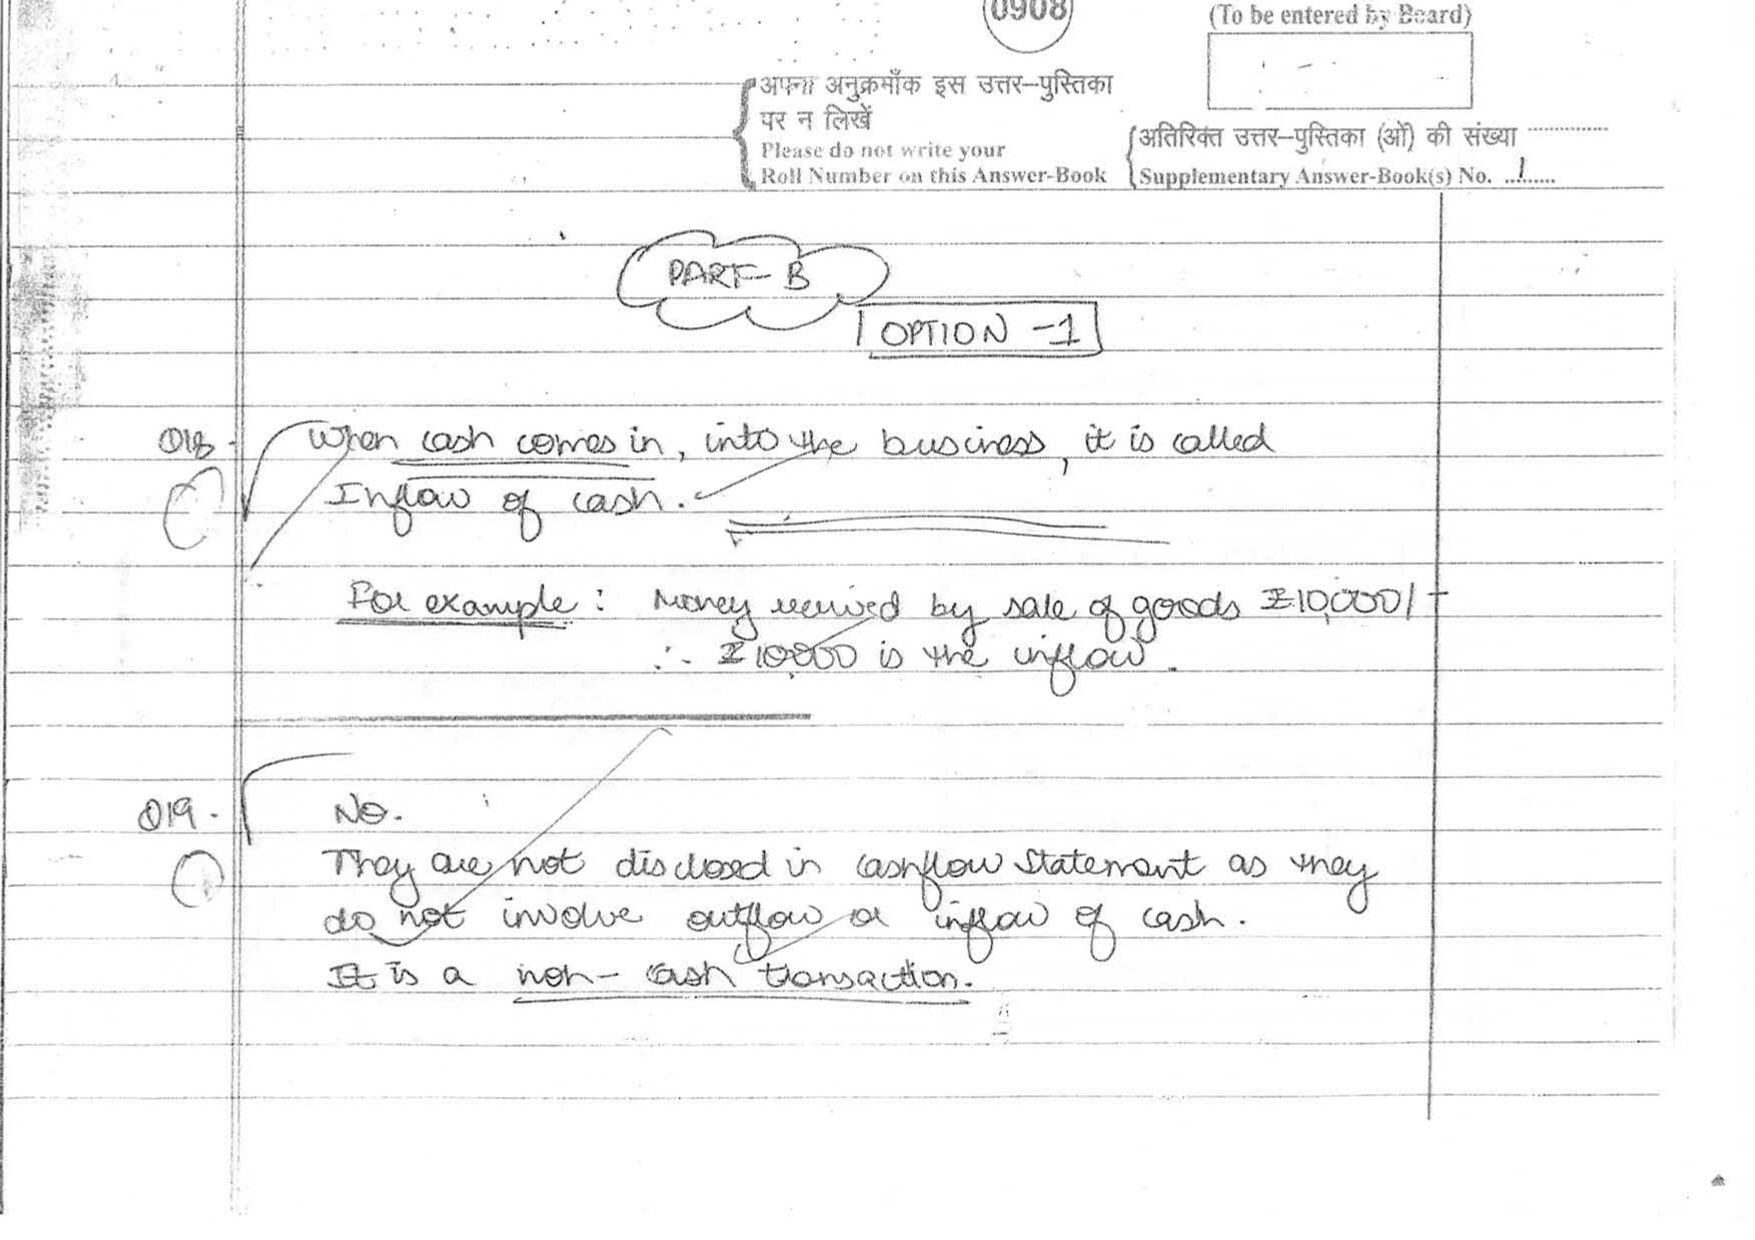 0908
(To be entered by Board)
अपना अनुक्रमाँक इस उत्तर–पुस्तिका
पर न लिखें
Please do not write your
Roll Number on this Answer-Book
अतिरिक्त उत्तर–पुस्तिका (ओं) की संख्या ..............
Supplementary Answer-Book(s) No. ...1......
PART-B
OPTION -1
Q18. When cash comes in, into the business, it is called
Inflow of cash.
For example : Money received by sale of goods ₹10,000/-
∴ ₹10,000 is the inflow.
Q19. No.
They are not disclosed in cashflow statement as they
do not involve outflow or inflow of cash.
It is a non-cash transaction.